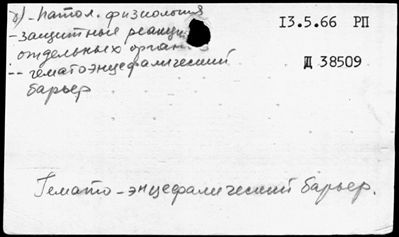 б) - патол. физиология
- защитные реакции
отдельных органов
-- гематоэнцефалический
барьер
13.5.66 РП
Д 38509
Гемато-энцефалический барьер.